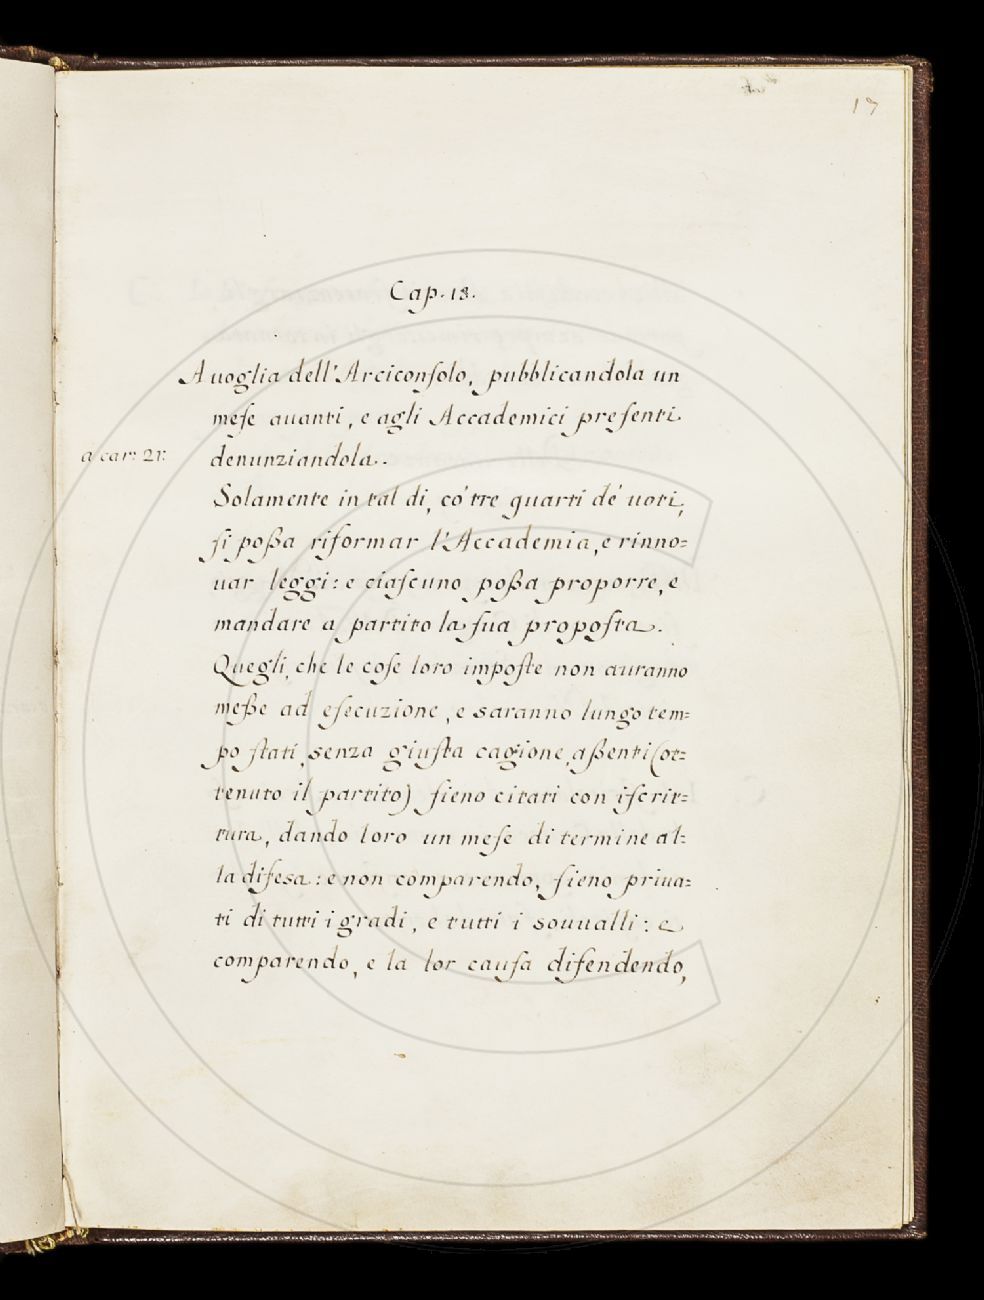 17
Cap. 13.
A uoglia dell'Arciconsolo, pubblicandola un
mese auanti, e agli Accademici presenti
a car: 21:
denunziandola.
Solamente in tal di, co' tre quarti de' uoti,
si possa riformar l'Accademia, e rinno=
uar leggi: e ciascuno possa proporre, e
mandare a partito la sua proposta.
Quegli, che le cose loro imposte non auranno
messe ad esecuzione, e saranno lungo tem=
po stati, senza giusta cagione, assenti (ot=
tenuto il partito) sieno citati con iscrit=
tura, dando loro un mese di termine al=
la difesa: e non comparendo, sieno priua=
ti di tutti i gradi, e tutti i souualli: e
comparendo, e la lor causa difendendo,